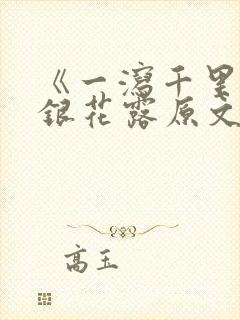 《一泻千里
银花露原文
高玉